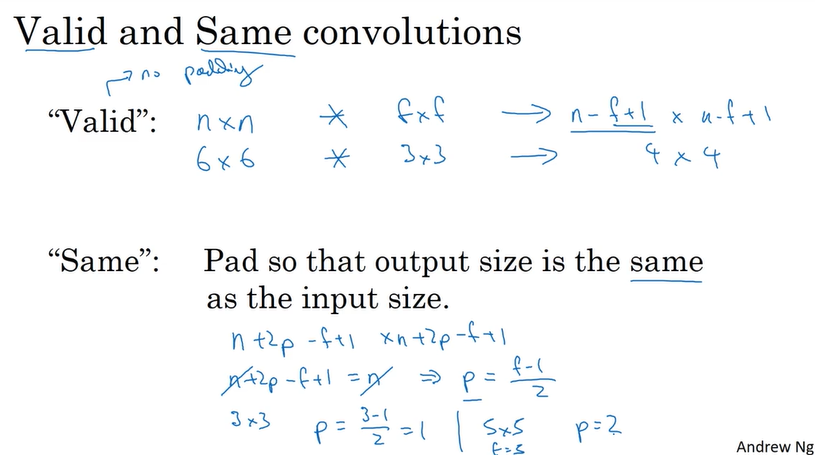 Valid and Same convolutions
→ no padding
“Valid”: n×n * f×f → n-f+1 × n-f+1
6×6 * 3×3 → 4 × 4
“Same”: Pad so that output size is the same
as the input size.
n+2p-f+1 ×n+2p-f+1
n+2p-f+1 = n ⇒ p = f-1/2
3×3 p = 3-1/2 = 1 | 5×5 p=2
f=5
Andrew Ng